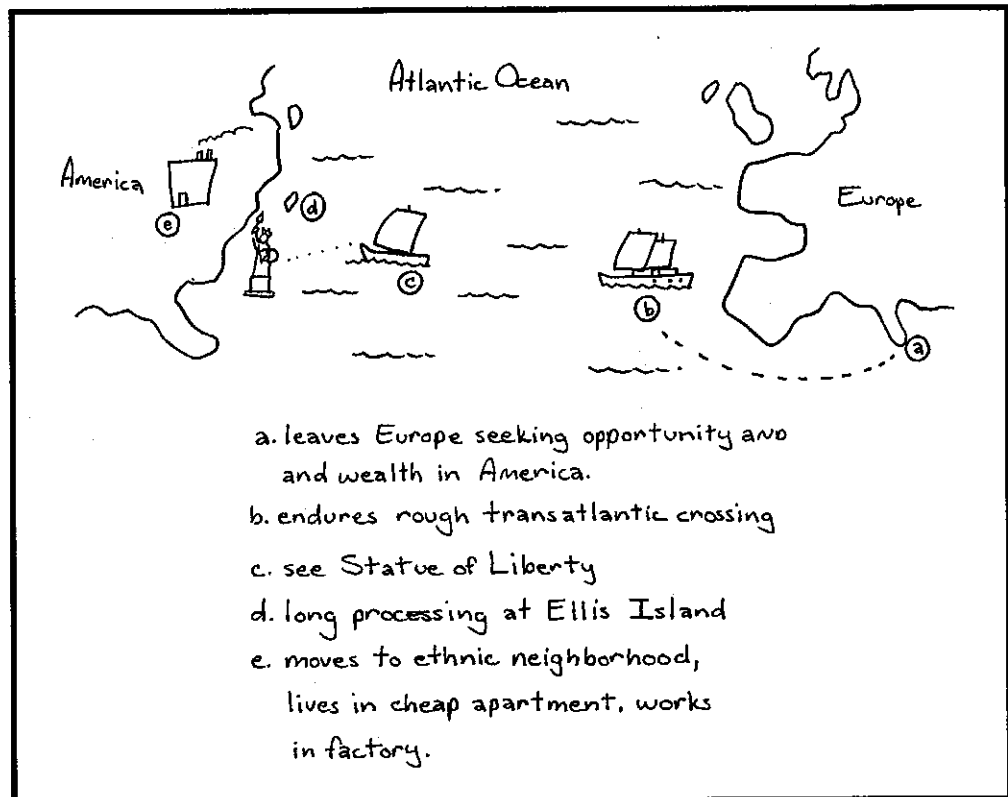 Atlantic Ocean
America
Europe
e
d
c
b
a
a. leaves Europe seeking opportunity and
and wealth in America.
b. endures rough transatlantic crossing
c. see Statue of Liberty
d. long processing at Ellis Island
e. moves to ethnic neighborhood,
lives in cheap apartment, works
in factory.